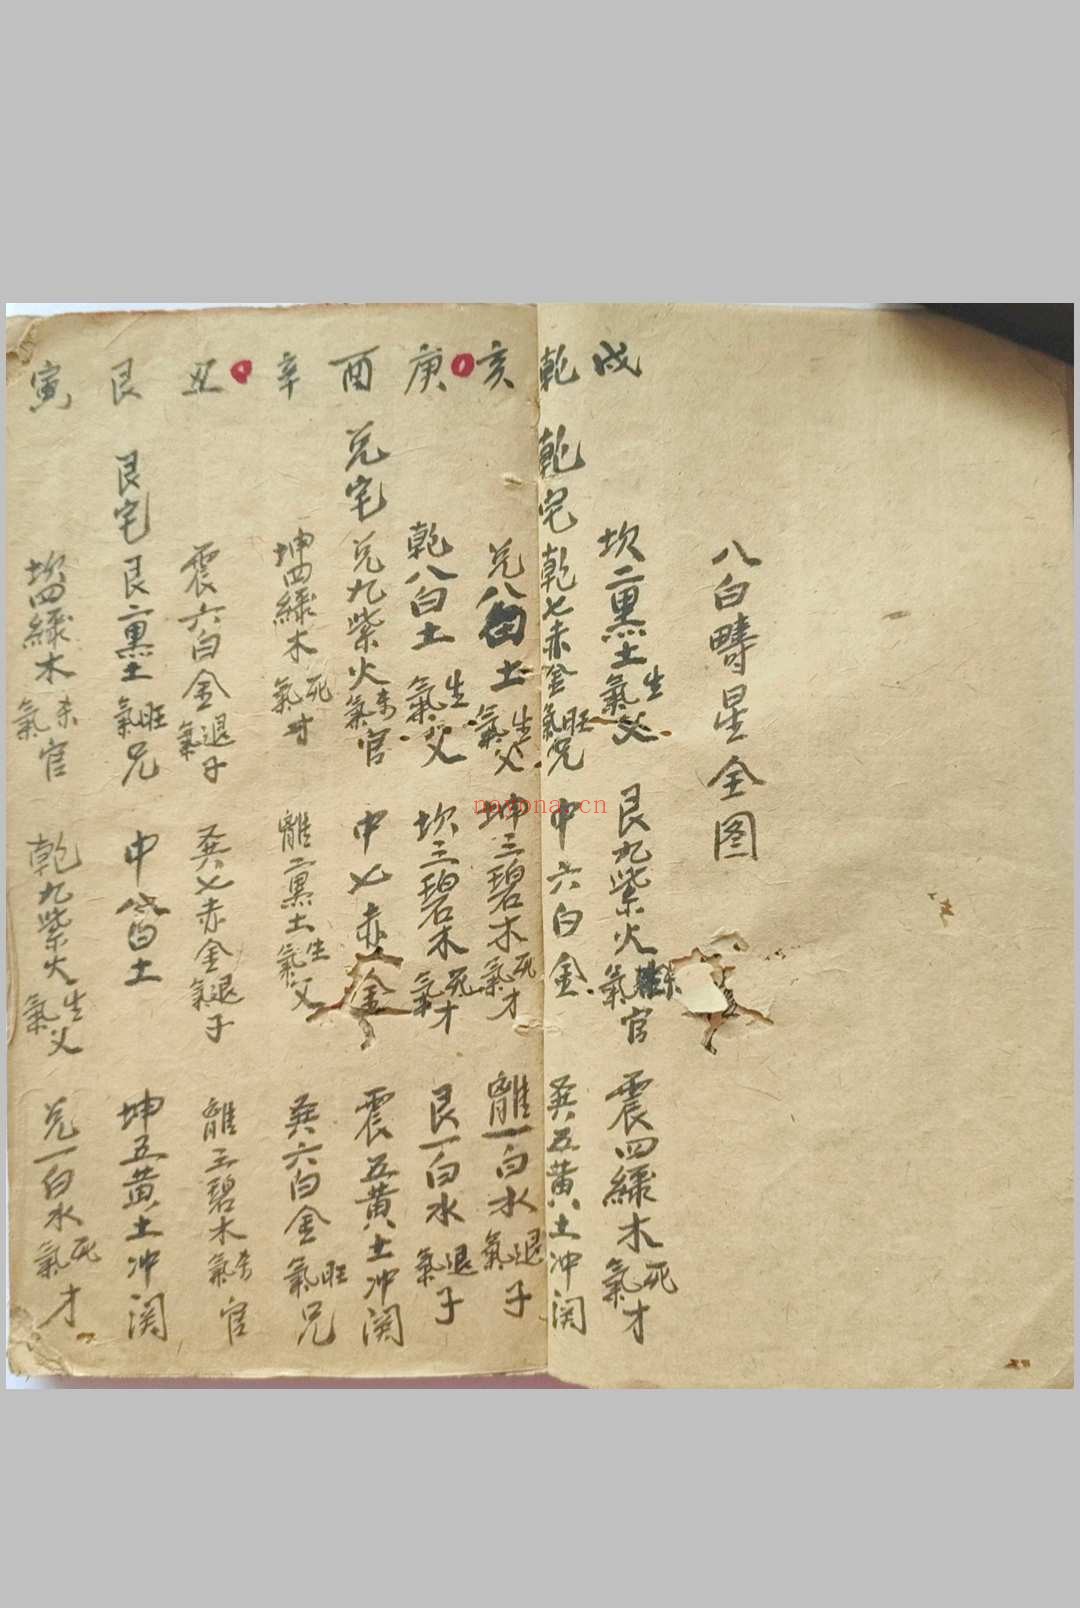 八白疇星全图
戍 坎二黑土生氣父 艮九紫火 氣官 震四綠木死氣才
乾 乾宅 乾七赤金旺氣兄 中六白金 巽五黄土冲関
亥 兑八白土生氣父 坤三碧木死氣才 離一白水退氣子
庚 乾八白土生氣父 坎三碧木死氣才 艮一白水退氣子
酉 兑宅 兑九紫火杀氣官 中七赤金 震五黄土冲関
辛 坤四綠木死氣才 離二黑土生氣父 巽六白金旺氣兄
丑 震六白金退氣子 巽七赤金退氣子 離三碧木杀氣官
艮 艮宅 艮二黑土旺氣兄 中八白土 坤五黄土冲関
寅 坎四綠木杀氣官 乾九紫火生氣父 兑一白水死氣才
nayona.cn